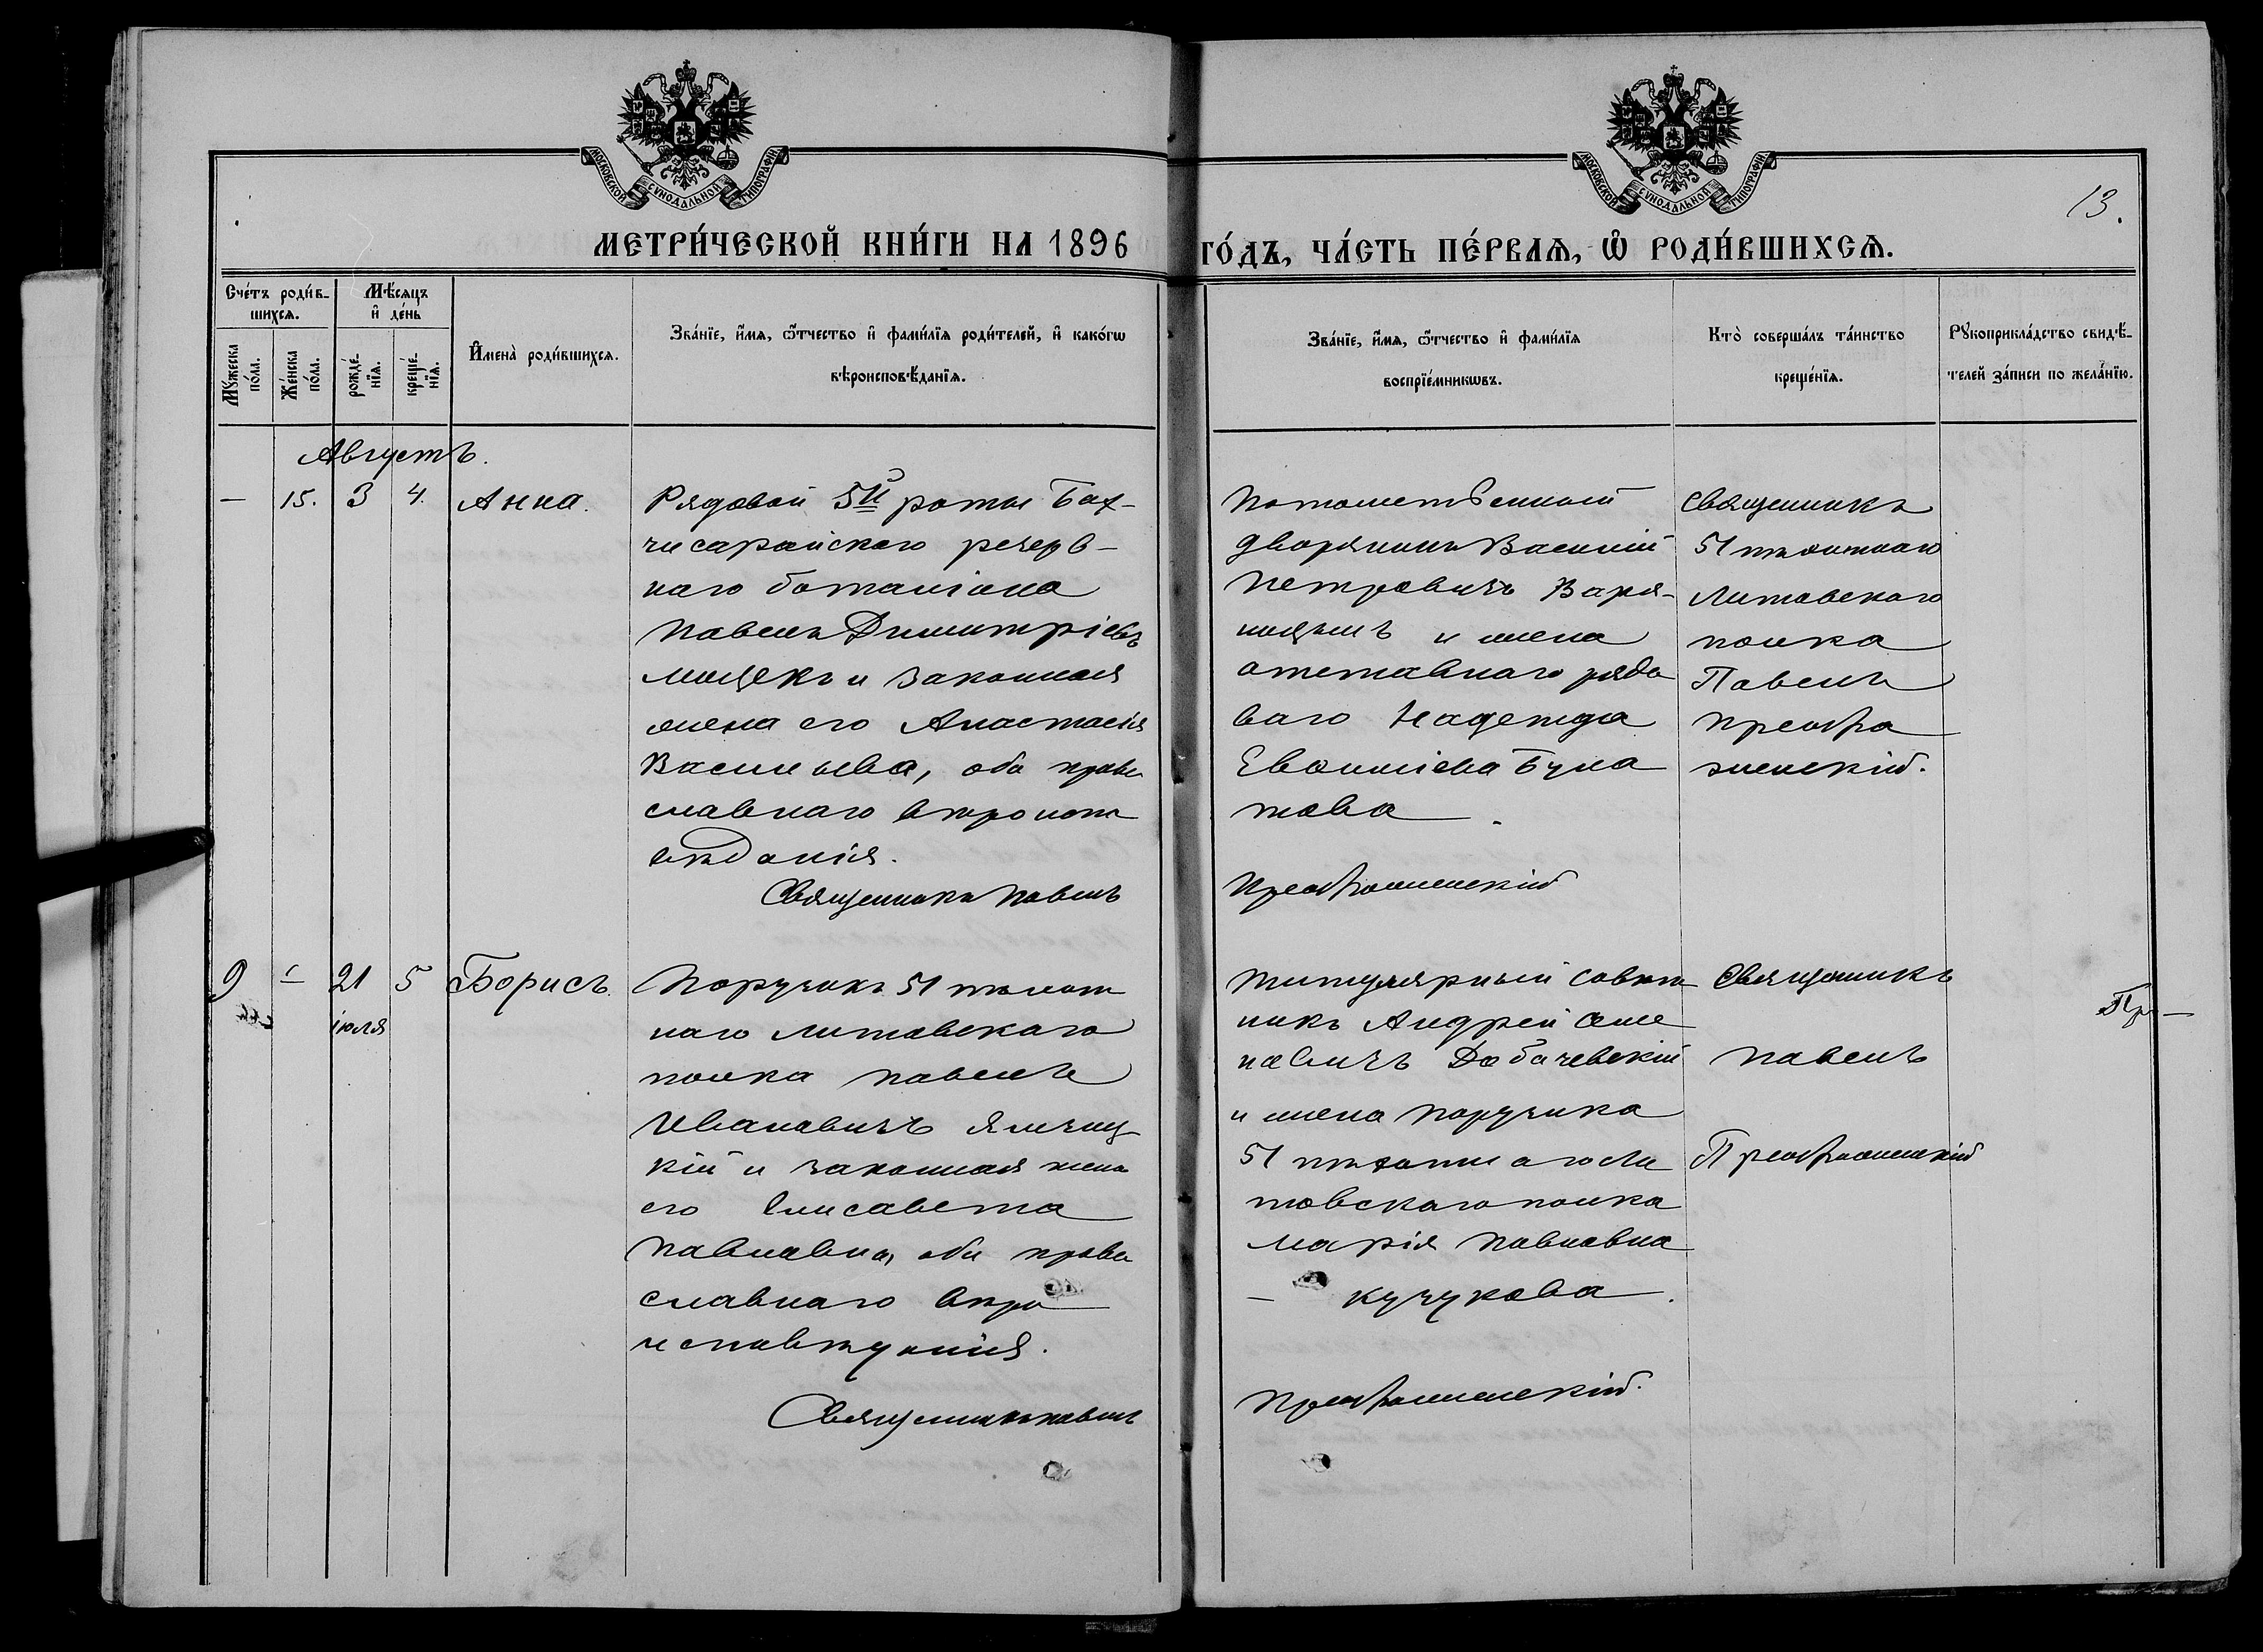 МОСКОВСКОЙ СѴНОДАЛЬНОЙ ТИПОГРАФІИ
МОСКОВСКОЙ СѴНОДАЛЬНОЙ ТИПОГРАФІИ
13.
МЕТРИ́ЧЕСКОЙ КНИ́ГИ НА 1896 ГО́ДЪ, ЧА́СТЬ ПЕ́РВАѦ, Ѡ҆ РОДИ́ВШИХСѦ.
Сче́тъ роди́в-
шихсѧ.
Мꙋ́жеска по́ла.
Же́нска по́ла.
Мѣ́сѧцъ
и҆ де́нь
рожде́-нїѧ.
креще́-нїѧ.
И҆мена̀ роди́вшихсѧ.
Зва́нїе, и҆́мѧ, ѻ҆́тчество и҆ фами́лїѧ роди́телей, и҆ како́гѡ
вѣроисповѣ́данїѧ.
Зва́нїе, и҆́мѧ, ѻ҆́тчество и҆ фами́лїѧ
воспрїе́мникѡвъ.
Кто̀ соверша́лъ та́инство
креще́нїѧ.
Рꙋкоприкла́дство свидѣ́-
телей за́писи по жела́нїю.
Августъ.
— 15. 3 4. Анна.
Рядовой 5й роты Бах-
чисарайскаго резерв-
наго баталіона
Павелъ Димитріевъ
Мицекъ и законная
жена его Анастасія
Васильева, оба право
славнаго вѣроисп
вѣданія.
Священникъ Павелъ
Потомственный
дворянинъ Василій
Петровичъ
и жена
отставнаго рядо
ваго Надежда
Евфиміева Була
това.
Преображенскій
Священникъ
51 пѣхотнаго
Литовскаго
полка
Павелъ
Преобра
женскій.
9 — 21 5 Борисъ.
іюля
Поручикъ 51 пѣхот
наго Литовскаго
полка Павелъ
Ивановичъ Яличиц
кій и законная жена
его Елисавета
Павловна, оба право
славнаго вѣро
исповѣданія.
Священникъ Павелъ
Титулярный Совѣт
никъ Андрей Семе
новичъ Добачевскій
и жена поручика
51 пѣхотнаго Ли
товскаго полка
Марія Павловна
— Кучукова.
Преображенскій.
Священникъ
Павелъ
Преображенскій
Пр —